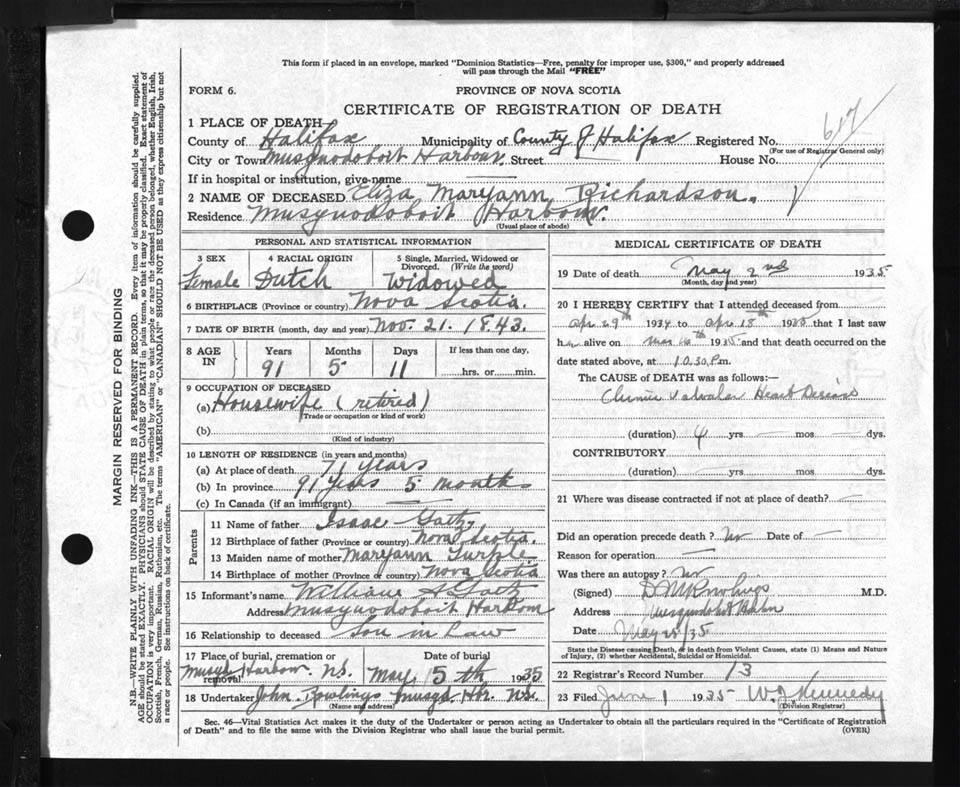 This form if placed in an envelope, marked "Dominion Statistics—Free, penalty for improper use, $300," and properly addressed
will pass through the Mail "FREE"
FORM 6.
PROVINCE OF NOVA SCOTIA
CERTIFICATE OF REGISTRATION OF DEATH
617
1 PLACE OF DEATH
County of Halifax Municipality of County of Halifax Registered No.
(For use of Registrar General only)
City or Town Musquodoboit Harbour, Street — House No.
If in hospital or institution, give name —
2 NAME OF DECEASED Eliza Maryann Richardson.
Residence Musquodoboit Harbour.
(Usual place of abode)
PERSONAL AND STATISTICAL INFORMATION
3 SEX 4 RACIAL ORIGIN 5 Single, Married, Widowed or Divorced. (Write the word)
Female Dutch Widowed
6 BIRTHPLACE (Province or country) Nova Scotia.
7 DATE OF BIRTH (month, day and year) Nov. 21. 1843.
8 AGE IN Years Months Days If less than one day,
91 5 11 hrs. or min.
9 OCCUPATION OF DECEASED
(a) Housewife (retired)
(Trade or occupation or kind of work)
(b)
(Kind of industry)
10 LENGTH OF RESIDENCE (in years and months)
(a) At place of death 71 years
(b) In province 91 years 5 months
(c) In Canada (if an immigrant) —
Parents
11 Name of father Isaac Gaetz,
12 Birthplace of father (Province or country) Nova Scotia.
13 Maiden name of mother Maryann Turple
14 Birthplace of mother (Province or country) Nova Scotia
15 Informant's name William A Gaetz
Address Musquodoboit Harbour
16 Relationship to deceased Son in Law
17 Place of burial, cremation or removal Date of burial
Musqd Harbour NS. May 5th 1935
18 Undertaker John Rowlings Musqd. Hbr. NS.
(Name and address)
MEDICAL CERTIFICATE OF DEATH
19 Date of death May 2nd 1935
(Month, day and year)
20 I HEREBY CERTIFY that I attended deceased from
Apr 29th 1934 to Apr 18th 1935 that I last saw
h alive on 1935 and that death occurred on the
date stated above, at 10.30 P.m.
The CAUSE OF DEATH was as follows:—
Chronic Valvular Heart Disease
(duration) 4 yrs — mos — dys.
CONTRIBUTORY
(duration) — yrs. — mos. — dys.
21 Where was disease contracted if not at place of death? —
Did an operation precede death? No Date of —
Reason for operation —
Was there an autopsy? No
(Signed) D M Rowlings M.D.
Address Musquodoboit Harbour
Date May 25/35
State the Disease causing Death, or in death from Violent Causes, state (1) Means and Nature
of Injury, (2) whether Accidental, Suicidal or Homicidal.
22 Registrar's Record Number 13
23 Filed June 1 1935 W J Kennedy
(Division Registrar)
Sec. 46—Vital Statistics Act makes it the duty of the Undertaker or person acting as Undertaker to obtain all the particulars required in the "Certificate of Registration
of Death" and to file the same with the Division Registrar who shall issue the burial permit.
(OVER)
MARGIN RESERVED FOR BINDING
N.B.—WRITE PLAINLY WITH UNFADING INK—THIS IS A PERMANENT RECORD. Every item of information should be carefully supplied.
AGE should be stated EXACTLY. PHYSICIANS should STATE CAUSE OF DEATH in plain terms, so that it may be properly classified. Exact statement of
OCCUPATION is very important. RACIAL ORIGIN will be described by stating to what people or race the deceased person belonged, whether English, Irish,
Scottish, French, German, Russian, Ruthenian, etc. The terms "AMERICAN" or "CANADIAN" SHOULD NOT BE USED as they express citizenship but not
a race or people. See instructions on back of certificate.